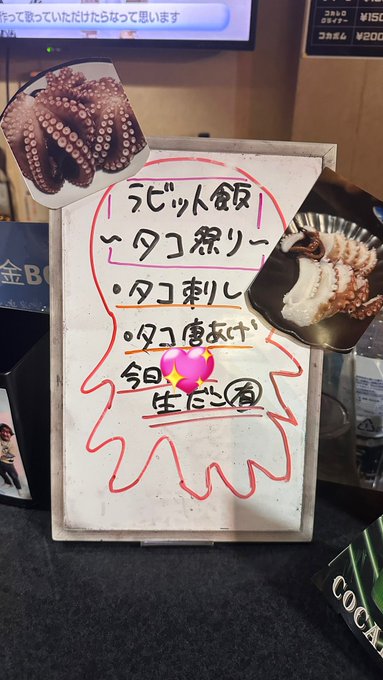 作って歌っていただけたらなって思います
コカレロ
クライナー ¥150
コカボム ¥200
ラビット飯
〜タコ祭り〜
・タコ刺し
・タコ唐あげ
今日
生だこ有
金B
COCA